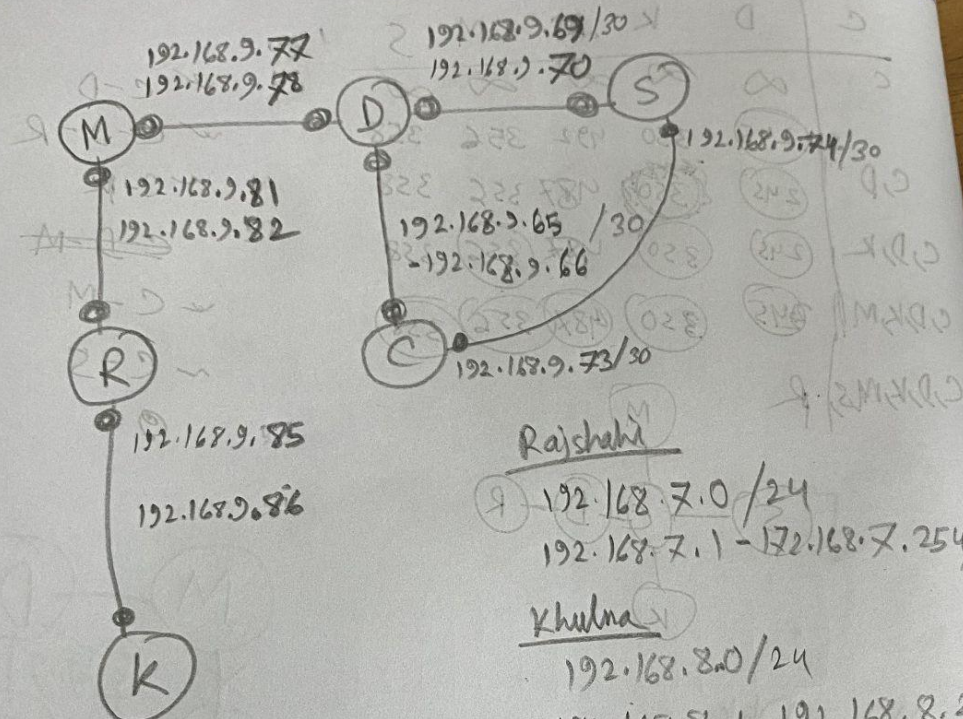 192.168.9.77
192.168.9.78
192.168.9.69/30
192.168.9.70
M
D
S
192.168.9.74/30
192.168.9.81
192.168.9.82
192.168.9.65 /30
-192.168.9.66
R
C
192.168.9.73/30
192.168.9.85
192.168.9.86
K
Rajshahi
192.168.7.0/24
192.168.7.1-172.168.7.254
Khulna
192.168.8.0/24